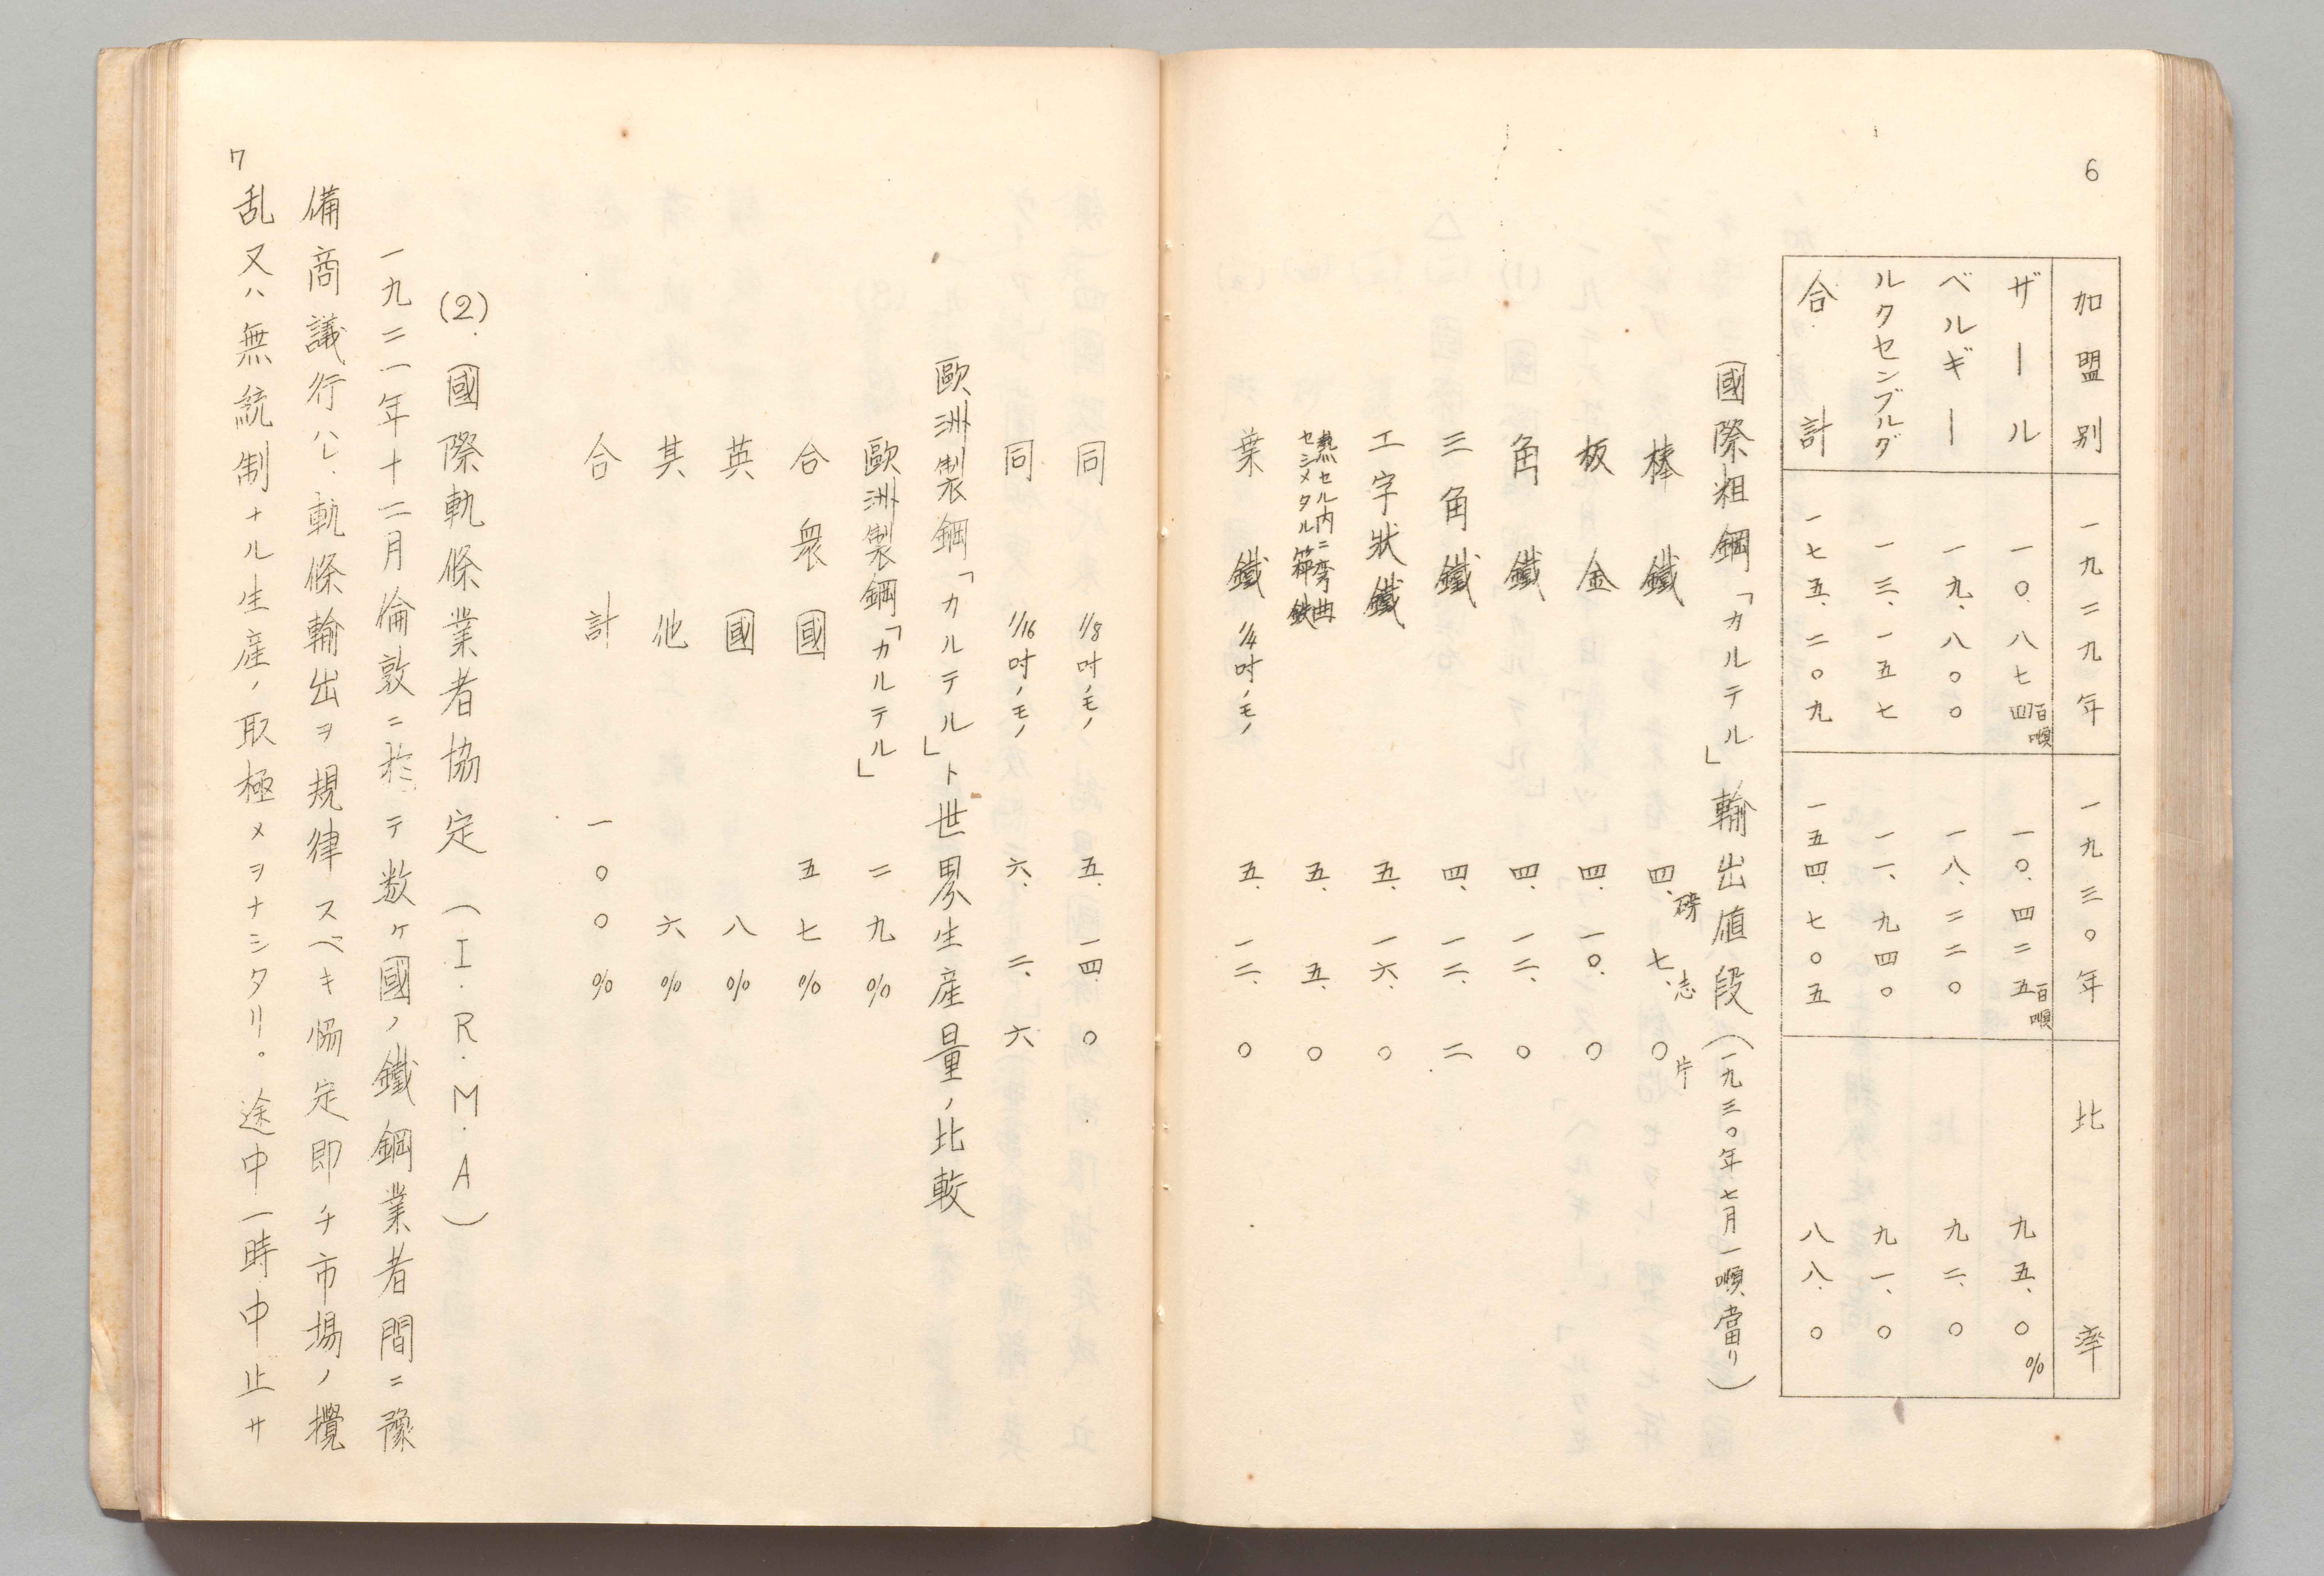 6
加盟別 一九二九年 一九三〇年 比率
ザール 一〇、八七四百噸 一〇、四二五百噸 九五、〇%
ベルギー 一九、八〇〇 一八、二二〇 九二、〇
ルクセンブルグ 一三、一五七 一一、九四〇 九一、〇
合計 一七五、二〇九 一五四、七〇五 八八、〇
國際粗鋼「カルテル」輸出値段(一九三〇年七月一噸當リ)
棒鐵 四、磅 七、志 〇片
板金 四、一〇、〇
角鐵 四、一二、〇
三角鐵 四、一二、二
工字狀鐵 五、一六、〇
熱セル内ニ弯曲
セシメタル箍鉄 五、五、〇
葉鐵 1/4吋ノモノ 五、一二、〇
同 1/8吋ノモノ 五、一四、〇
同 1/16吋ノモノ 六、二、六
歐洲製鋼「カルテル」ト世界生産量ノ比較
歐洲製鋼「カルテル」 二九%
合衆國 五七%
英國 八%
其他 六%
合計 一〇〇%
(2).國際軌條業者協定(I.R.M.A)
一九二一年十二月倫敦ニ於テ数ヶ國ノ鐵鋼業者間ニ豫
備商議行ハレ、軌條輸出ヲ規律スベキ協定即チ市場ノ攪
乱又ハ無統制ナル生産ノ取極メヲナシタリ。途中一時中止サ
7